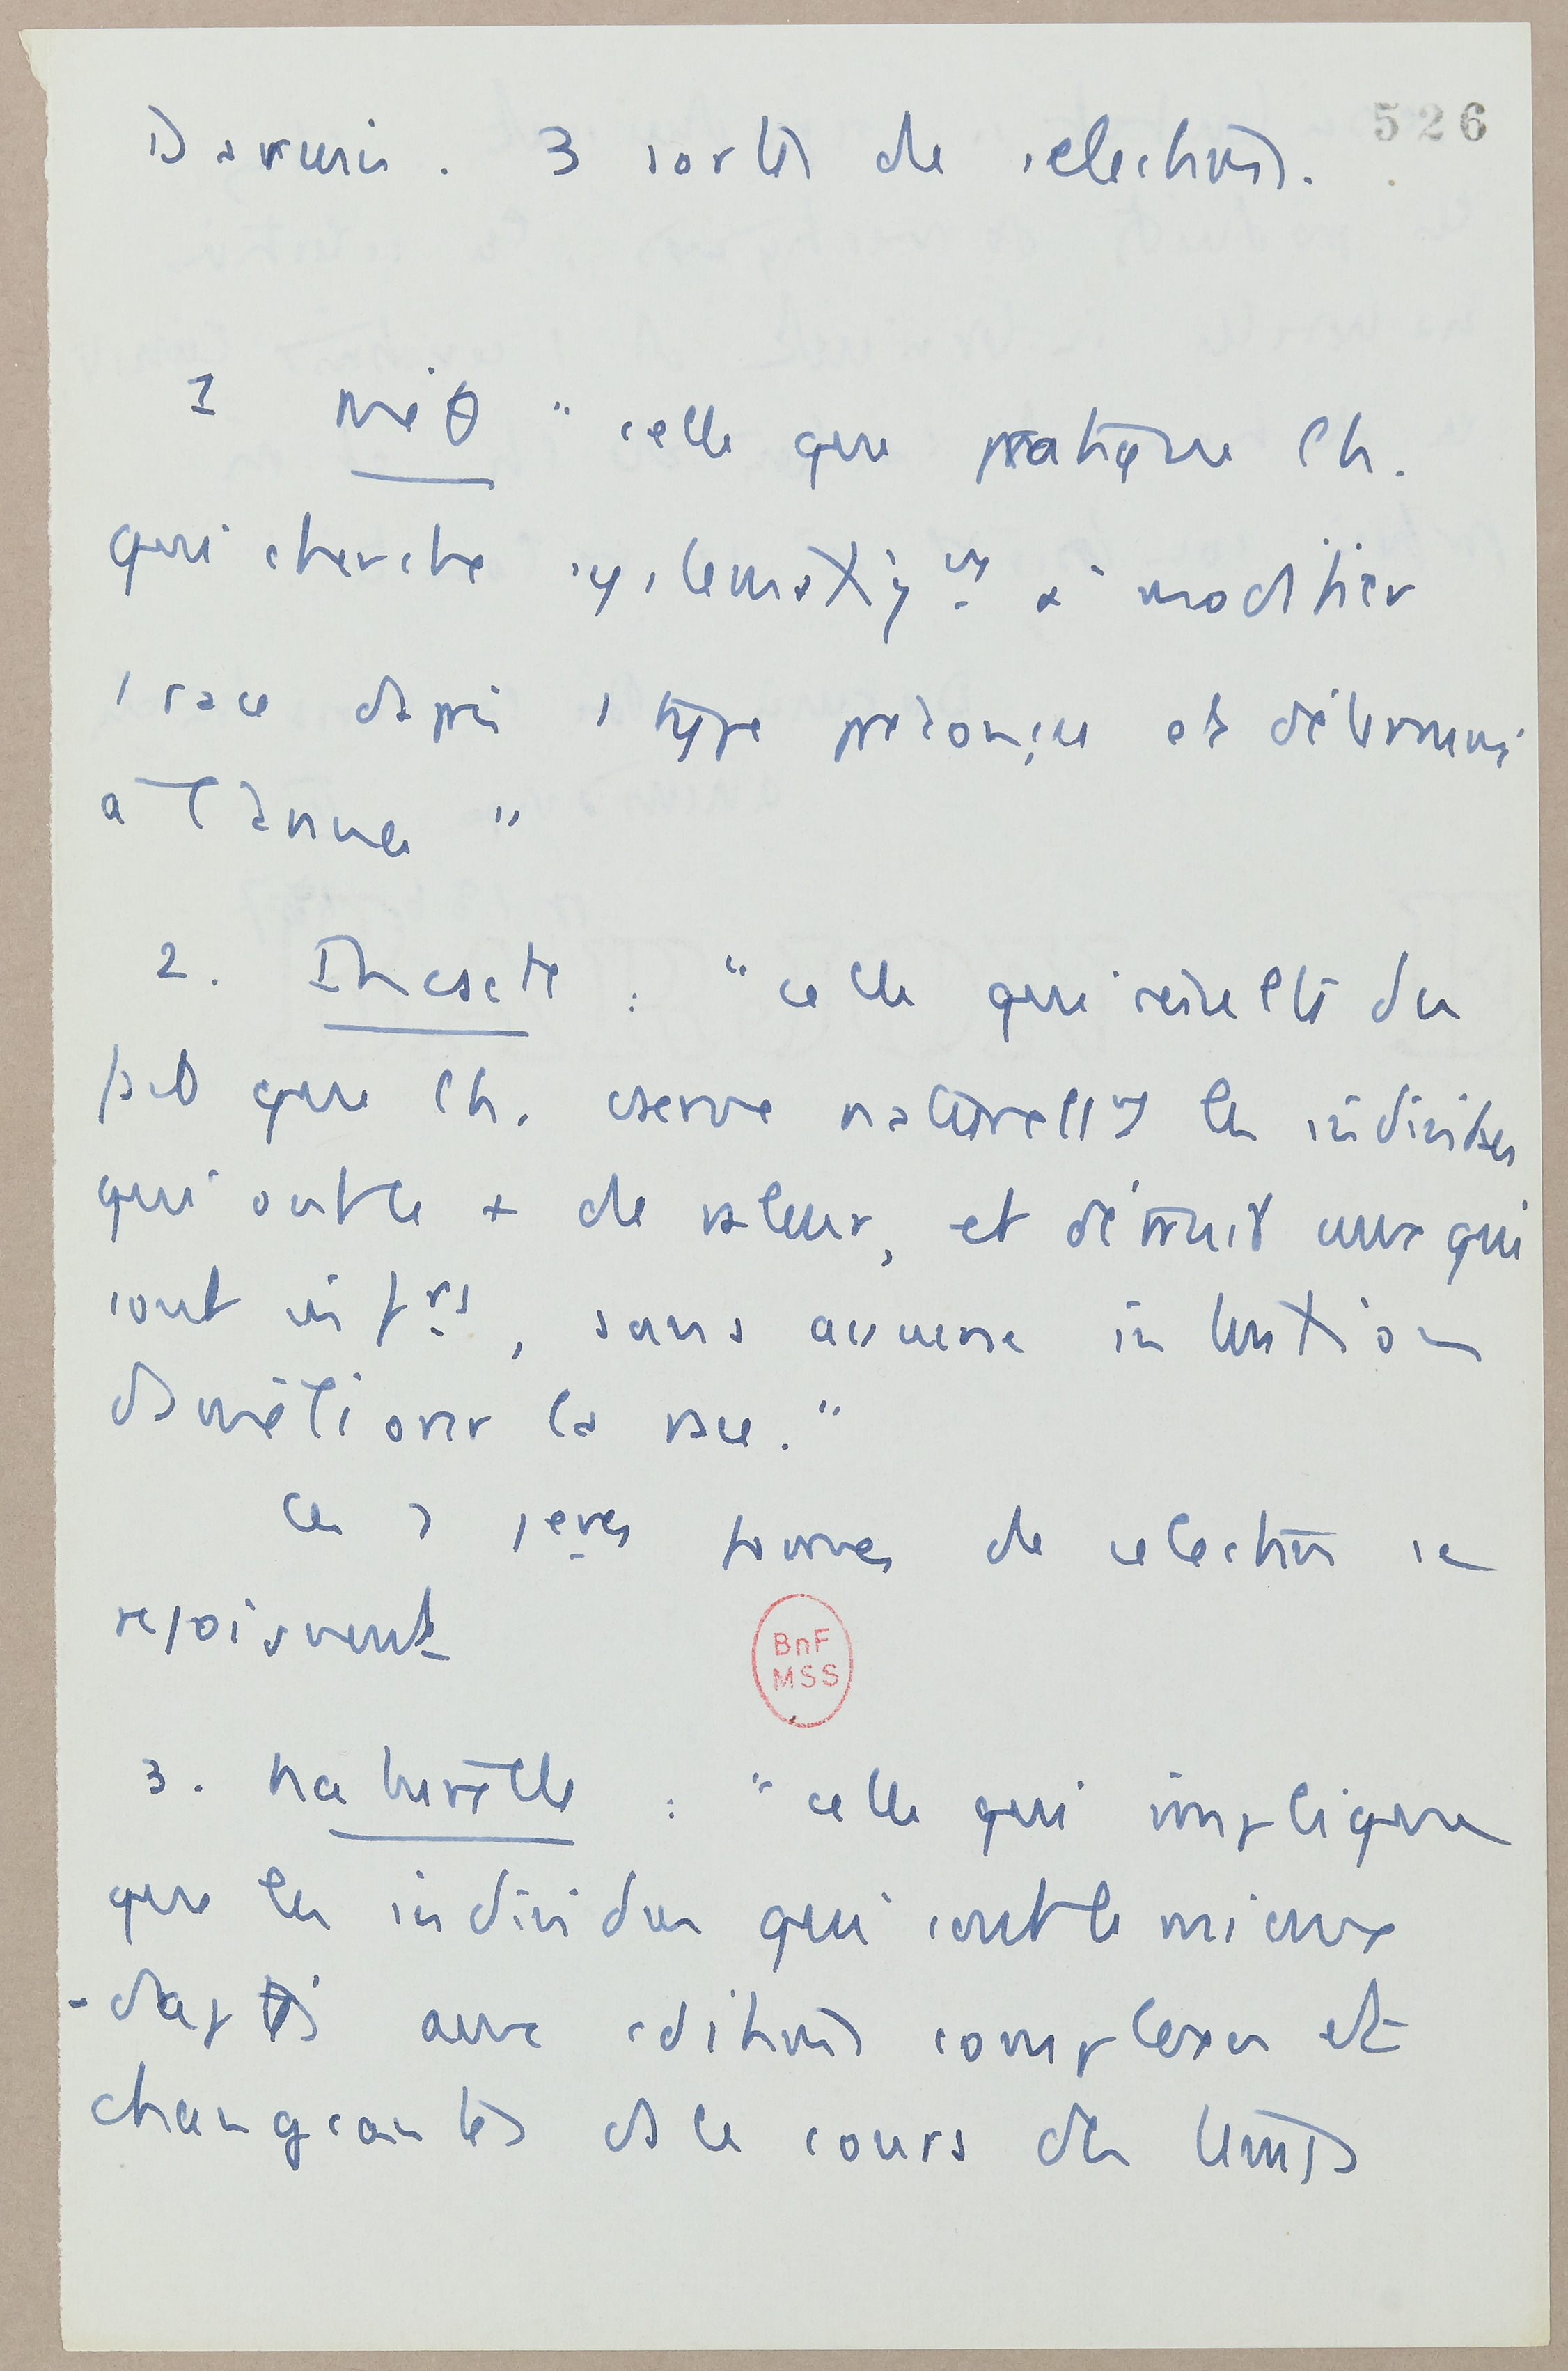 526
Darwin. 3 sortes de selections.
1 méθ " celle que pratique l'h.
qui cherche systematiqnt à modifier
1 race daprès 1 type préconçu et déterminé
a l'avance "
2. Inconscte : " celle qui résulte du
fait que l'h. cserve naturellnt les individus
qui ont le + de valeur, et détruit ceux qui
sont infrs, sans aucune intention
d'améliorer la race. "
Ces 2 1eres formes de selection se
rejoignent
BnF
MSS
3. Naturelle : " celle qui implique
que les individus qui sont le mieux
adaptés aux cditions complexes et
changeantes ds le cours des temps